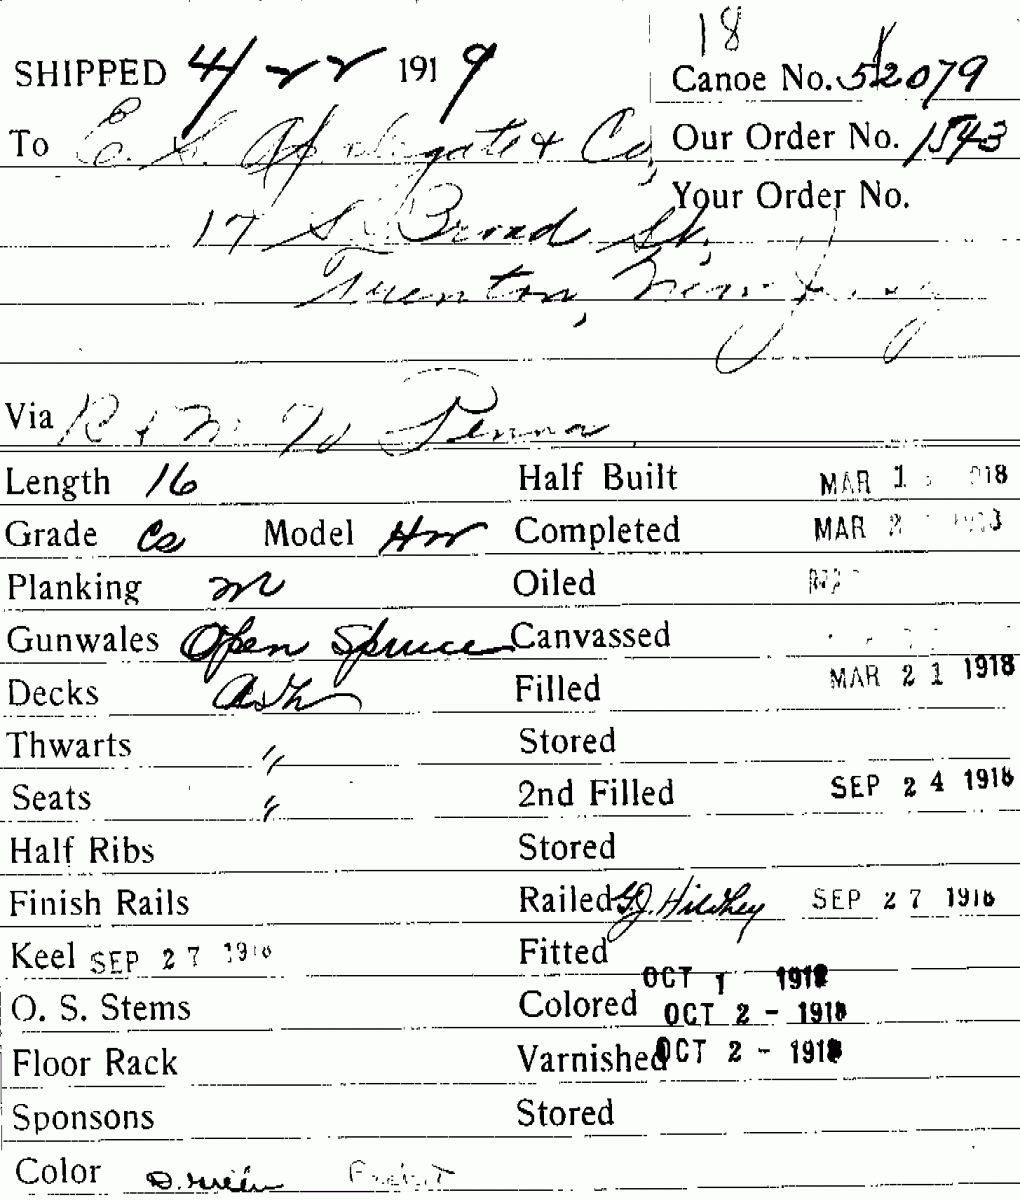 18
SHIPPED 4/22 1919 Canoe No. 52079
To E. S. Applegate & Co, Our Order No. 1543
Your Order No.
17 S. Broad St,
Trenton, New Jersey
Via B & M To Penna.
Length 16 Half Built MAR 1 1918
Grade Cs Model Hw Completed MAR 2
Planking M Oiled
Gunwales Open Spruce Canvassed
Decks Ash Filled MAR 21 1918
Thwarts " Stored
Seats " 2nd Filled SEP 24 1918
Half Ribs Stored
Finish Rails Railed G.J. SEP 27 1918
Keel SEP 27 1918 Fitted OCT 1 1918
O. S. Stems Colored OCT 2 - 1918
Floor Rack Varnished OCT 2 - 1918
Sponsons Stored
Color D. Green